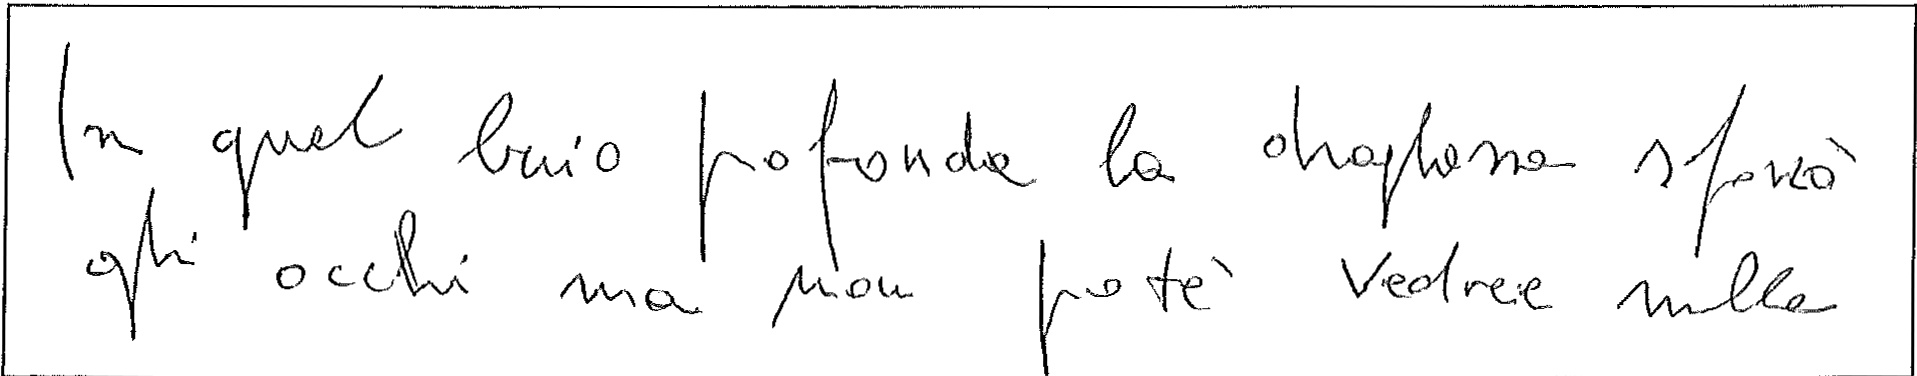 In quel buio pofonda la draghessa sforzò
gli occhi ma non potè vedree nulla